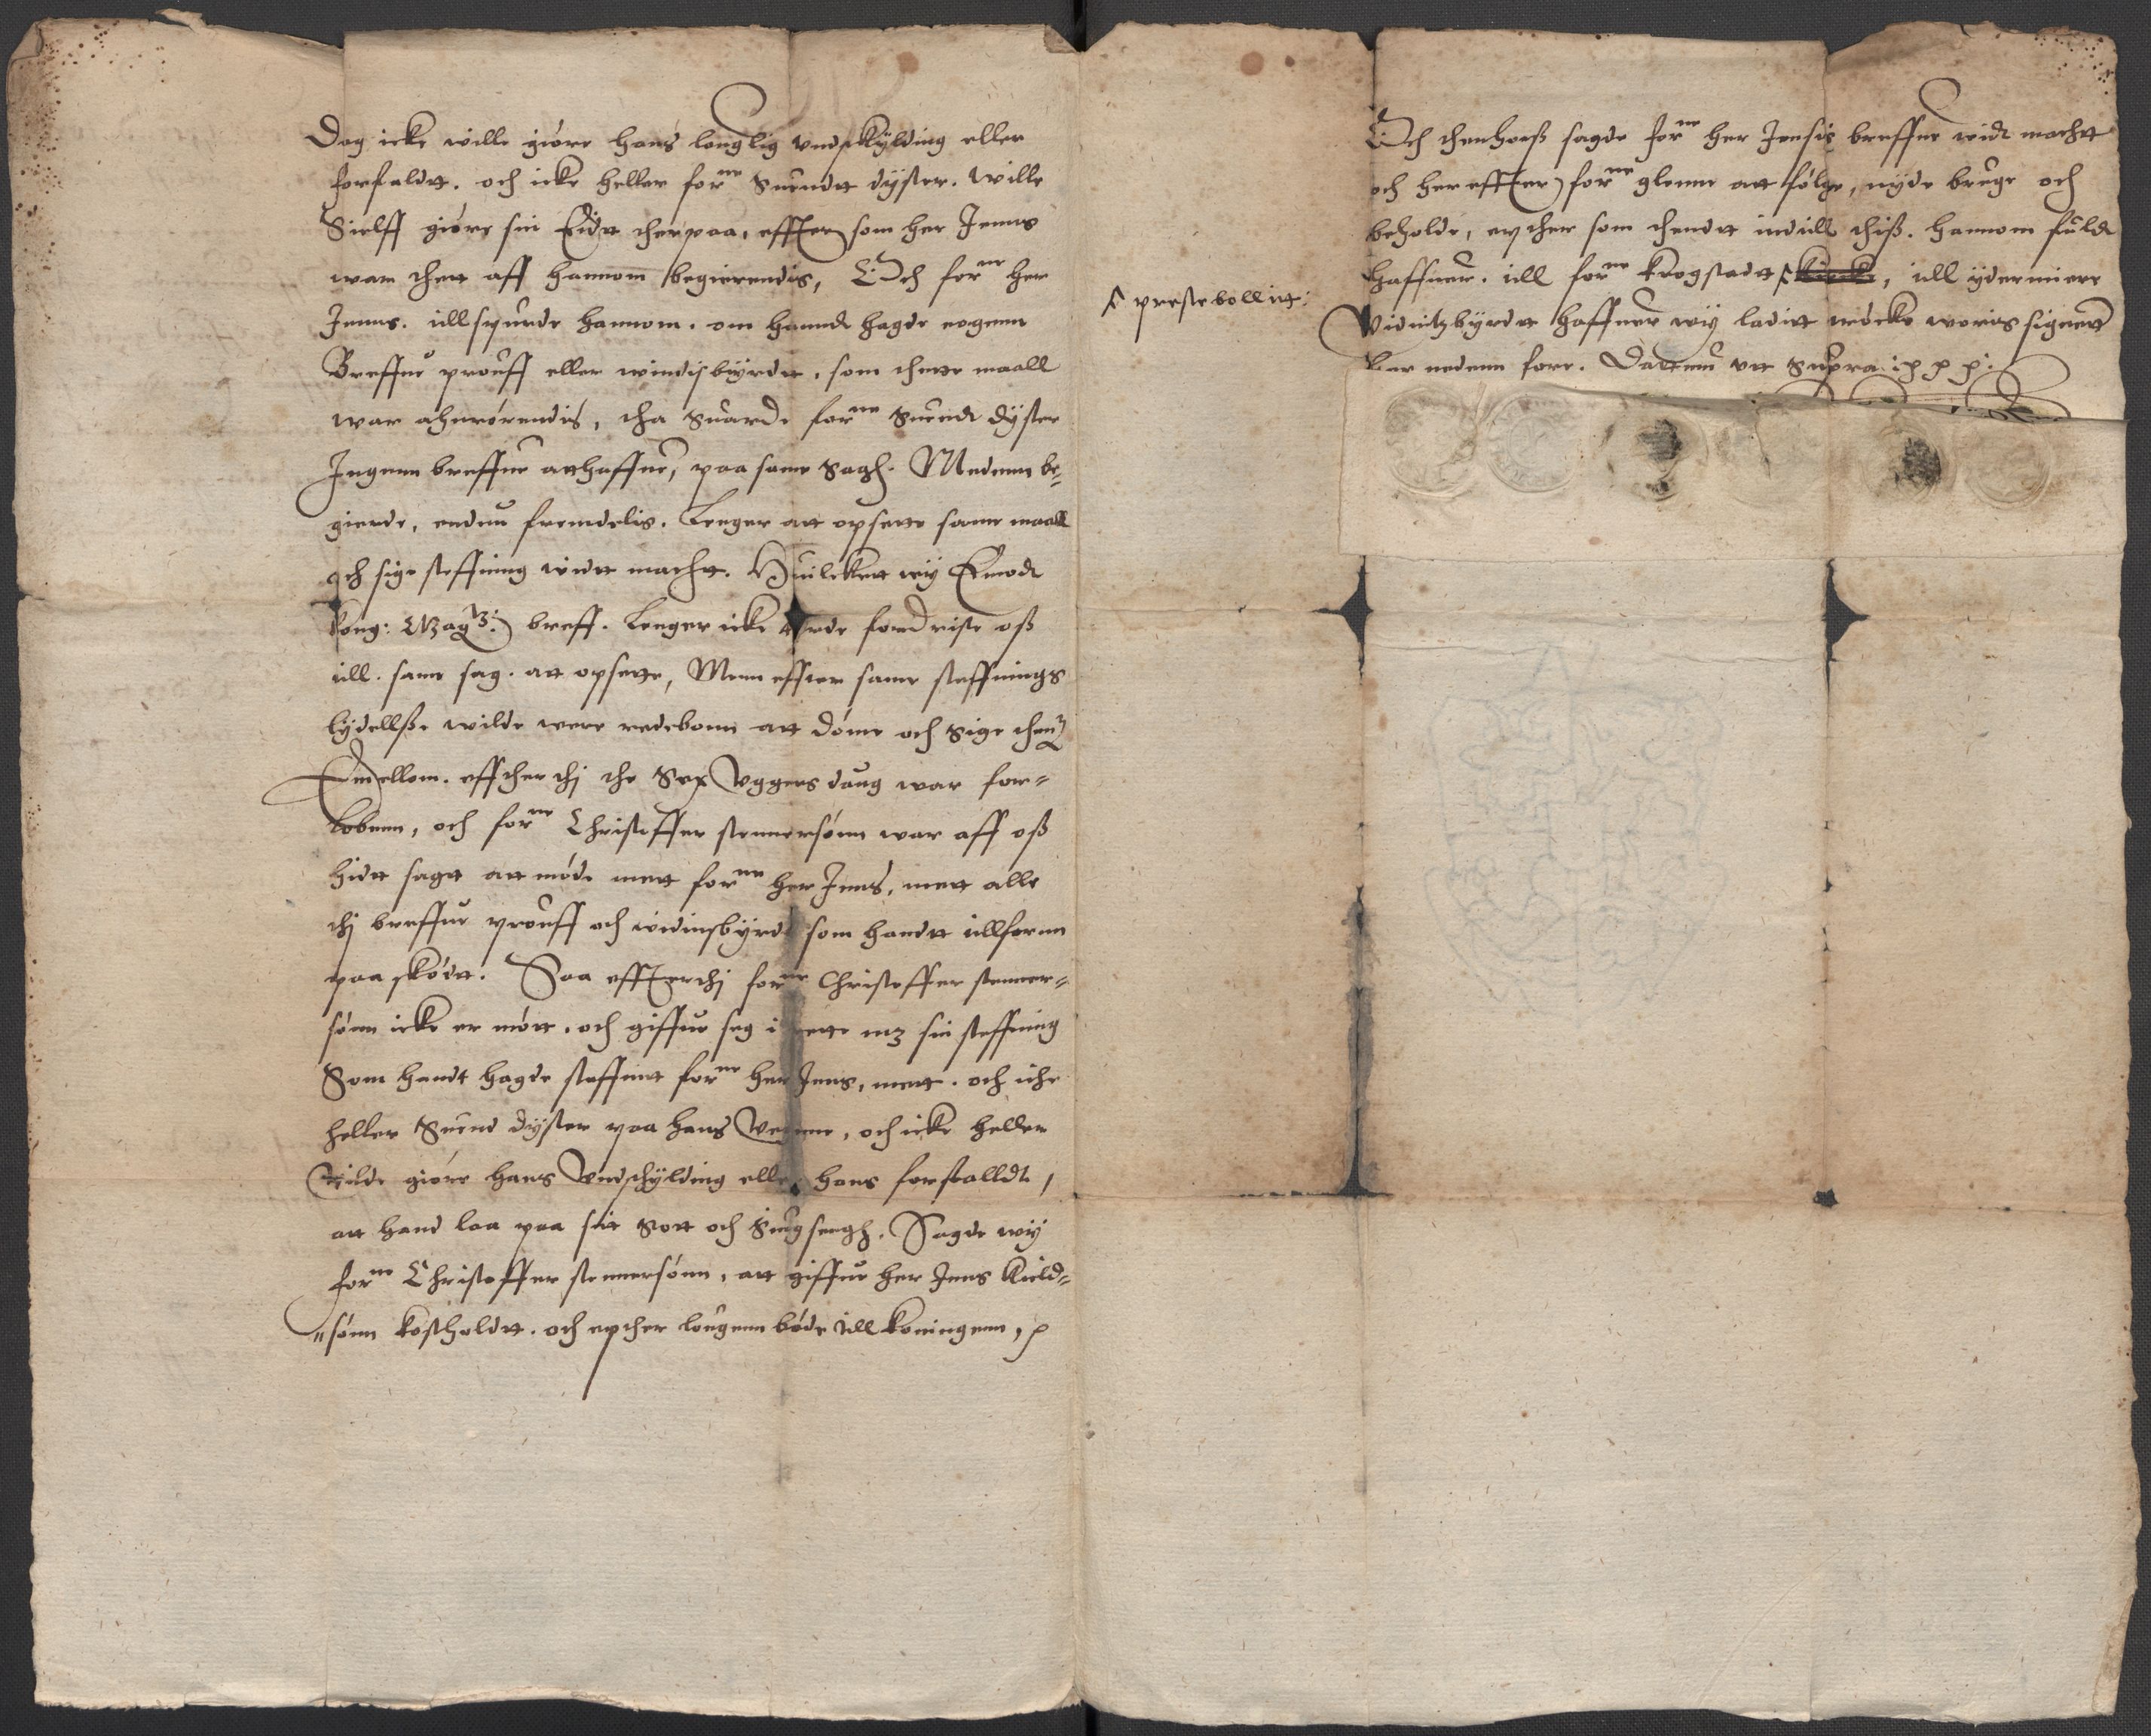 Dog icke wille giøre hans louglig vndskÿlding eller
forfaldtt. och icke heller for^ne Suendtt dÿster. wille
Sielff giøre sin Eidtt ther paa, effther som her Jenns
war thett aff hannom begierendis, Och for^ne her
Jenns. till spurde hannom. om hannd hagde nogenn
Breffue prouff eller windisbÿrdtt, som thette maall
war ahnrørendis, tha Suarde for^ne Suend dÿster
Ingenn breffue att haffue, paa same Sagh. Medenn be-
gierde, endnu fremdelis. Lenger att opsette same maall
och sige steffning widtt machtt. Huilckett wÿ Emod
kong: May^tz: breff. Lenger icke torde fordriste oss
till. same sag. att opsette, Menn effther same steffnings
lÿdellsse wilde were redebonn att døme och Sige thenn
Emellom. effther thj the Sex vggers daug war for-
lobenn, och for^ne Christoffer stennersønn war aff oss
hidtt sagtt att møde mett for^ne her Jens, mett alle
thj breffue prouff och widnisbÿrd som handtt tillfornn
paa skødtt. Saa effther thj for^ne Christoffer stenner-
sønn icke er møtt. och giffue seg i rette mz sin steffning
Som handt hagde steffnett for^ne her Jens, mett. och icke
heller Suend dÿster paa hans vegne, och icke heller
wilde giøre hans vndschÿlding eller hans forfalldt,
att hand laa paa sin Sott och Siugsengh. Sagde wÿ
for^ne Christoffer stennersønn, att giffue her Jens Kield-
"sønn kostholdtt. och epther lougenn bøde till koningenn,
Och thenhoss sagde for^ne her Jensis breffue widt machtt
och her effther for^ne glenne att følge, nÿde bruge och
beholde, epther som thendtt indtill thiss. hannom fuld
haffuer. till for^ne krogstadtt kircke, till ÿdermiere
prestebollitt:
Vidnitzbÿrdtt haffuer wÿ laditt trøcke woris signett
her nedenn fore. Dattum vtt Supra